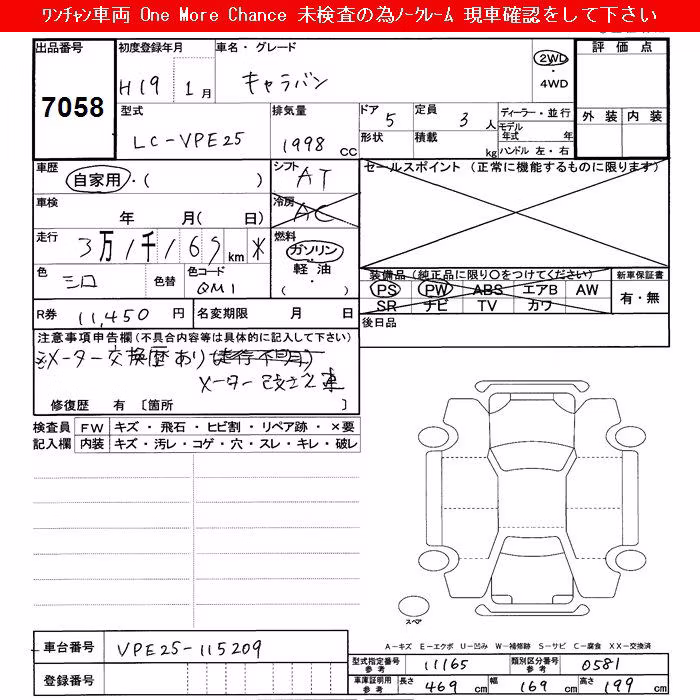 ﾜﾝﾁｬﾝ車両 One More Chance 未検査の為ﾉｰｸﾚｰﾑ 現車確認をして下さい
出品番号 初度登録年月 車名・グレード 2WD 評価点
7058 H19 1月 キャラバン ・ 4WD
型式 排気量 ドア 5 定員 3人 ディーラー・並行 外装 内装
LC-VPE25 1998 cc 形状 積載 kg モデル年式 年
ハンドル 左・右
車歴 自家用・( ) シフト AT セールスポイント (正常に機能するものに限ります)
車検 年 月( 日) 冷房 AC
走行 3万1千169km ※ 燃料 ガソリン
軽油・( )
色 シロ 色替 色コード QM1 装備品 (純正品に限り○をつけてください) 新車保証書
PS PW ABS エアB AW 有・無
SR ナビ TV カワ
R券 11,450円 名変期限 月 日 後日品
注意事項申告欄(不具合内容等は具体的に記入して下さい)
※メーター交換歴あり(走行不明)
メーター改ざん車
修復歴 有 [箇所 ]
検査員 FW キズ・飛石・ヒビ割・リペア跡・×要
記入欄 内装 キズ・汚レ・コゲ・穴・スレ・キレ・破レ
スペア
A－キズ E－エクボ U－凹み W－補修跡 S－サビ C－腐食 XX－交換済
車台番号 VPE25-115209
型式指定番号 参考 11165 類別区分番号 参考 0581
登録番号
車庫証明用 参考 長さ 469 cm 幅 169 cm 高さ 199 cm